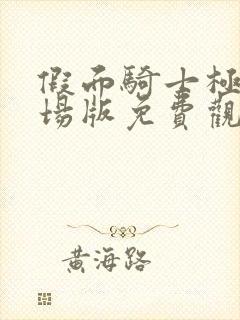 假而騎士極
場版免費觀
黃海路